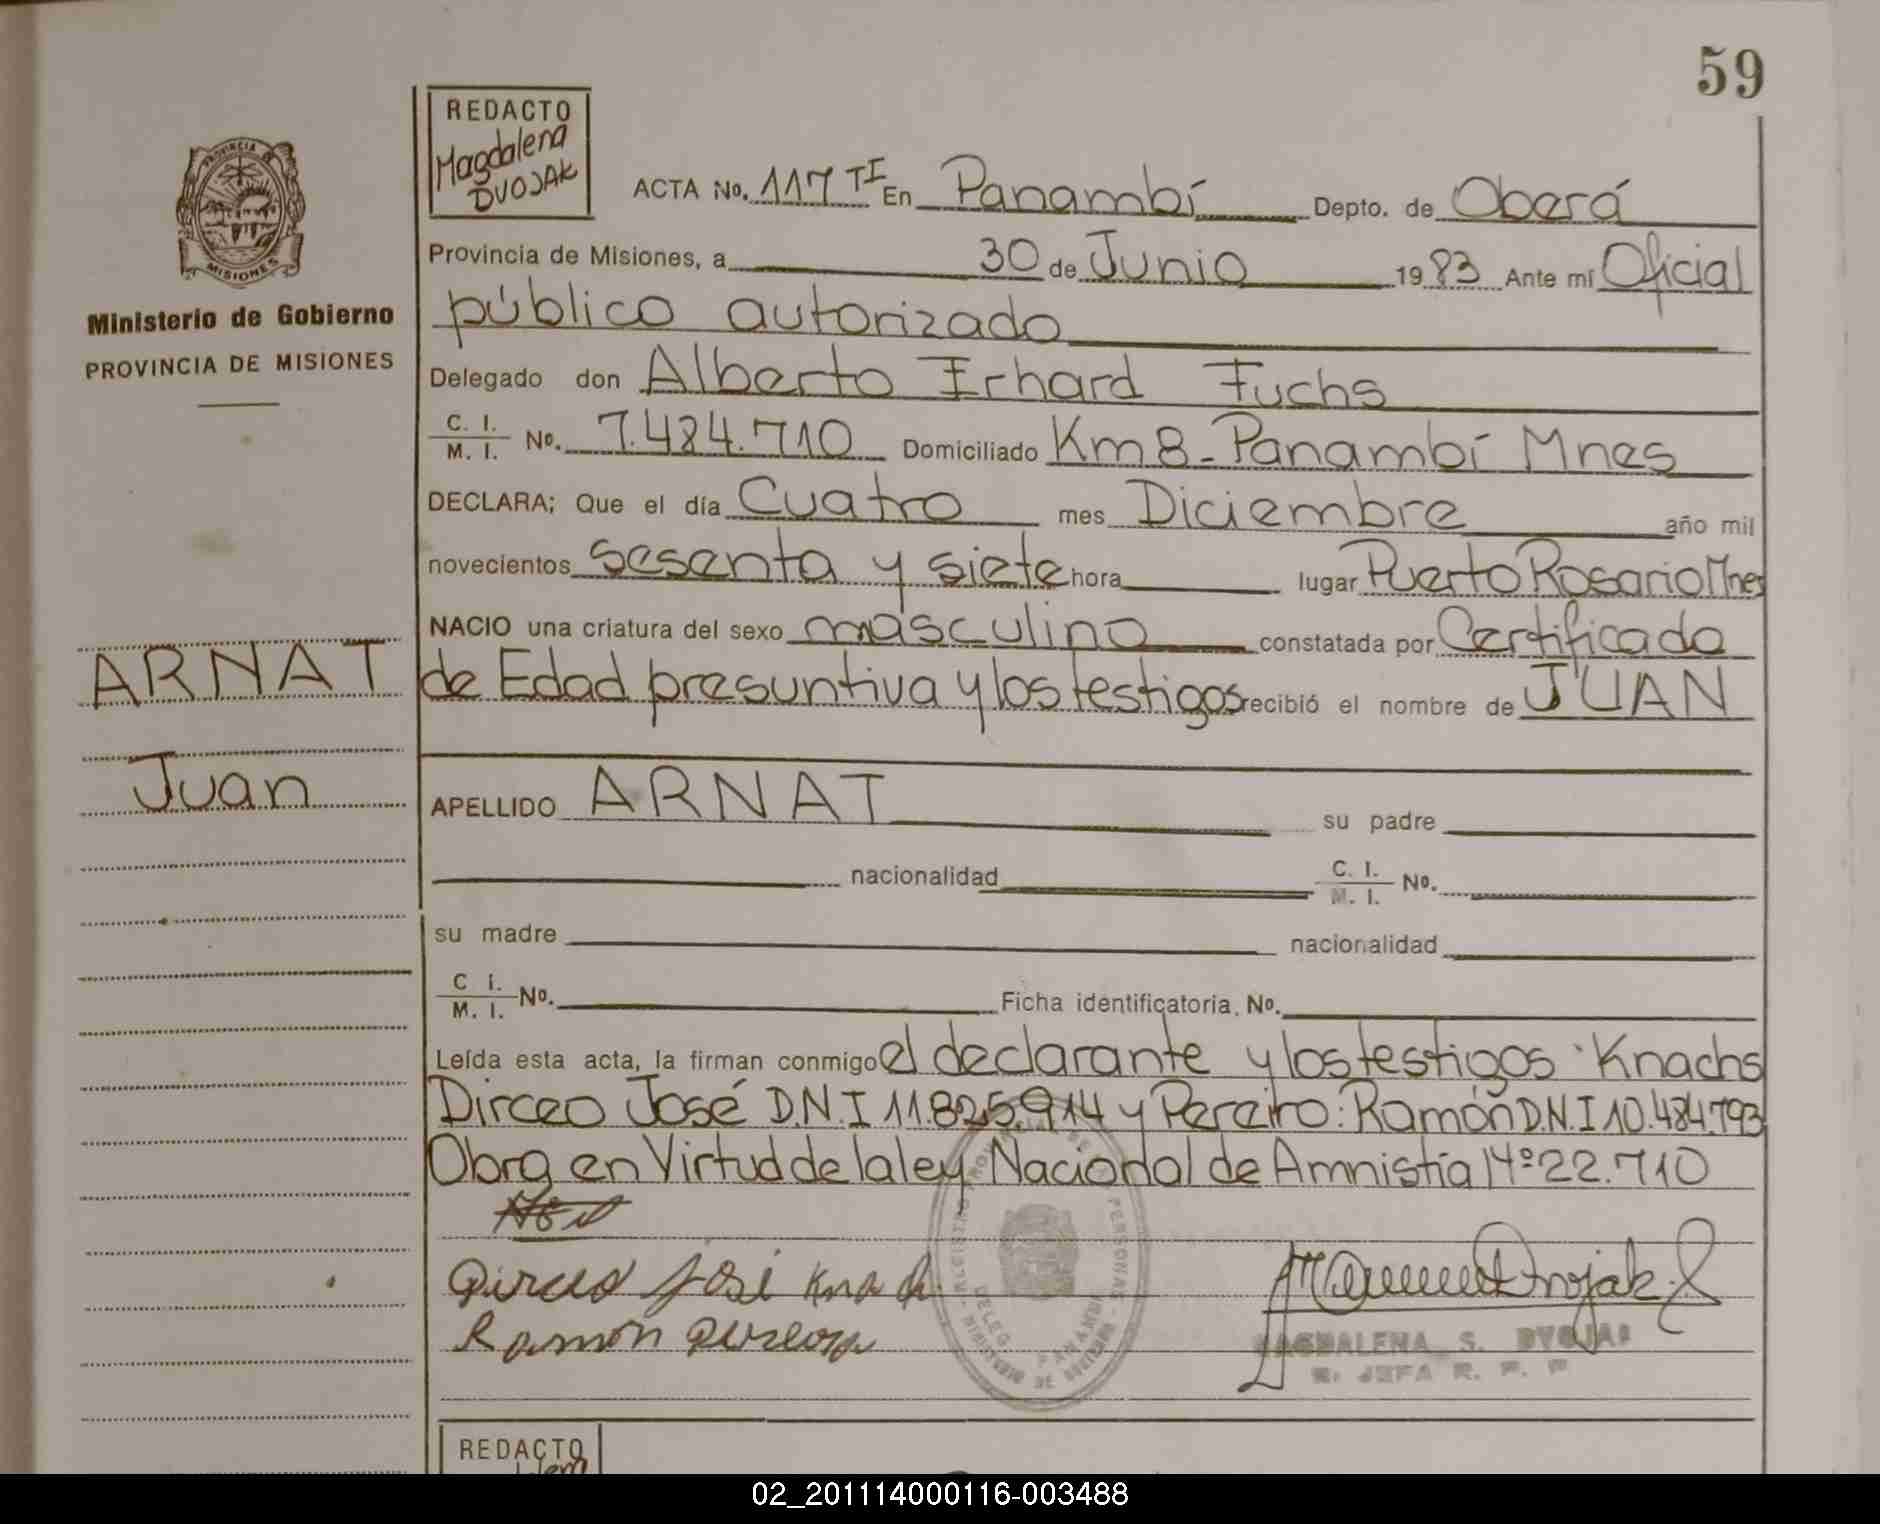 59
REDACTO
Magdalena
DVOJAK
ACTA No. 117 TI En Panambí Depto. de Oberá
Provincia de Misiones, a 30 de Junio 1983 Ante mí Oficial
público autorizado
Delegado don Alberto Erhard Fuchs
C. I.
M. I. No. 7.484.710 Domiciliado Km 8 - Panambí Mnes
DECLARA; Que el día Cuatro mes Diciembre año mil
novecientos sesenta y siete hora lugar Puerto Rosario Mnes
NACIO una criatura del sexo másculino constatada por Certificado
de Edad presuntiva y los testigos recibió el nombre de JUAN
APELLIDO ARNAT su padre
nacionalidad C. I.
M. I. No.
su madre nacionalidad
C I.
M. I. No. Ficha identificatoria. No.
Leída esta acta, la firman conmigo el declarante y los testigos Knachs
Dirceo José D.N.I 11.825.914 y Pereiro: Ramón D.N.I 10.484.793
Obrg en Virtud de la ley Nacional de Amnistía Nº 22.710
Dirceo José
Ramón
MAGDALENA S. DVOJAK
JEFA R. P. P
PROVINCIA DE
MISIONES
Ministerio de Gobierno
PROVINCIA DE MISIONES
ARNAT
Juan
REDACTO
02_201114000116-003488